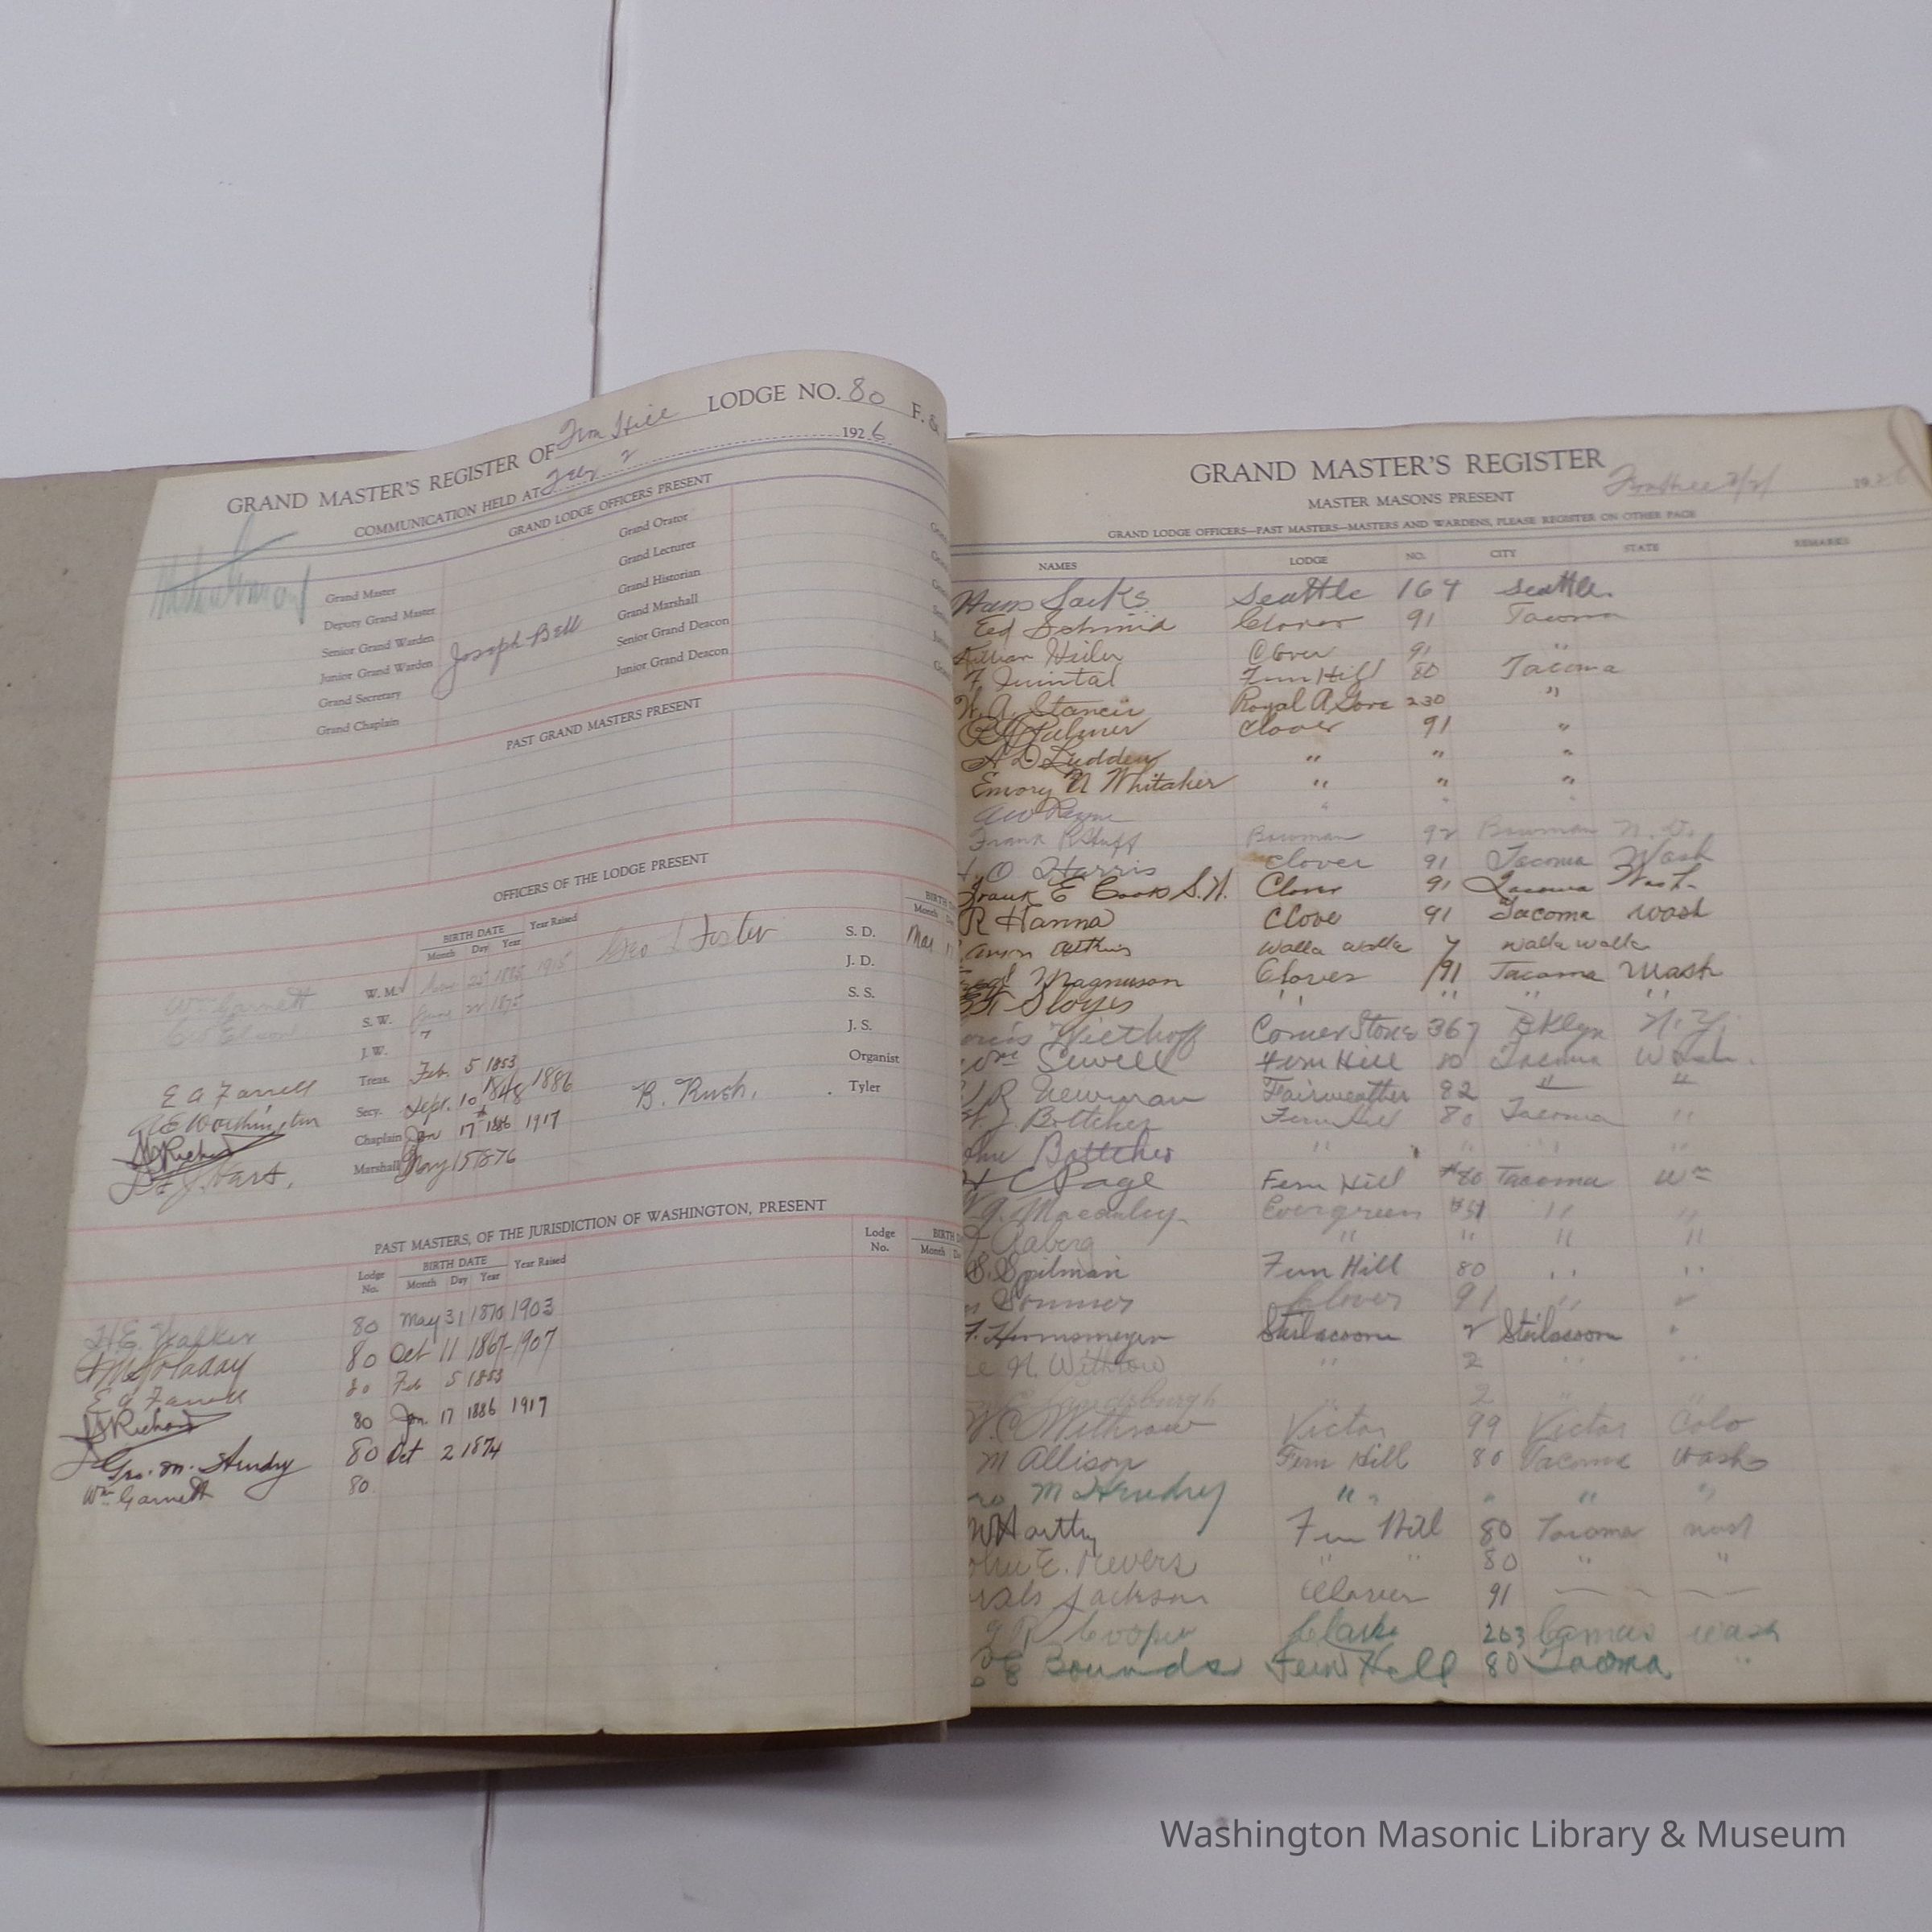 GRAND MASTER'S REGISTER OF Fern Hill LODGE NO. 80 F. &
COMMUNICATION HELD AT 2 1926
GRAND LODGE OFFICERS PRESENT
Grand Master
Deputy Grand Master
Senior Grand Warden
Junior Grand Warden
Grand Secretary
Grand Chaplain
Joseph Bell
Grand Orator
Grand Lecturer
Grand Historian
Grand Marshall
Senior Grand Deacon
Junior Grand Deacon
PAST GRAND MASTERS PRESENT
OFFICERS OF THE LODGE PRESENT
BIRTH DATE Year Raised
Month Day Year
Wm Garnett W. M. 25 1885 1915 Geo L Foster S. D. Mar
S. W. June 22 1875 J. D.
J. W. S. S.
E A Farrell Treas. Feb 5 1853 J. S.
A E Worthington Secy. Sept. 10 1848 1886 Organist
Richard Chaplain Jan 17 1886 1917 B. Rush. Tyler
J. Hart. Marshall May 15 1876
PAST MASTERS, OF THE JURISDICTION OF WASHINGTON, PRESENT
Lodge No. BIRTH DATE Year Raised Lodge No.
Month Day Year Month
H E Walker 80 May 31 1870 1903
80 Oct 11 1867 1907
E A Farrell 80 Feb 5 1853
Richard 80 Jan. 17 1886 1917
Geo. M. Hendry 80 Oct 2 1874
Wm Garnett 80
GRAND MASTER'S REGISTER
MASTER MASONS PRESENT Fern Hill 1926
GRAND LODGE OFFICERS—PAST MASTERS—MASTERS AND WARDENS, PLEASE REGISTER ON OTHER PAGE
NAMES LODGE NO. CITY STATE REMARKS
Hans Sacks Seattle 164 Seattle.
Ed Schmid Clover 91 Tacoma
Clover 91 "
F Quintal Fern Hill 80 Tacoma
W. A. Stancir Royal A 230 "
Palmer Clover 91 "
A D Ludden " " "
Emory N Whitaker " " "
" " "
Frank R Huff Bowman 92 Bowman N. D.
O Harris Clover 91 Tacoma Wash
Frank E Cook S.W. Clover 91 Tacoma Wash
R Hanna Clover 91 Tacoma Wash
Walla Walla 7 Walla Walla
Magnuson Clover 91 Tacoma Wash
" " " "
Wiethoff Corner Stone 367 Bklyn N. Y.
Wm Sewell Fern Hill 80 Tacoma Wash.
R Newman Fairweather 82 " "
Bottcher Fern Hill 80 Tacoma "
Bottcher " " " "
H C Page Fern Hill #80 Tacoma Wn
Macaulay Evergreen #51 " "
Raberg " " " "
S. Spilman Fern Hill 80 " "
Sommer Clover 91 " "
F. Steilacoom 2 Steilacoom "
N. Withrow " 2 " "
Landsburgh " 2 " "
W. C Withrow Victor 99 Victor Colo
M Allison Fern Hill 80 Tacoma Wash
M Hendry " " " "
Fern Hill 80 Tacoma Wash
E. Nevers " " 80 " "
Jackson Clover 91
R Cooper 263 Camas Wash
E Bounds Fern Hill 80 Tacoma "
Washington Masonic Library & Museum